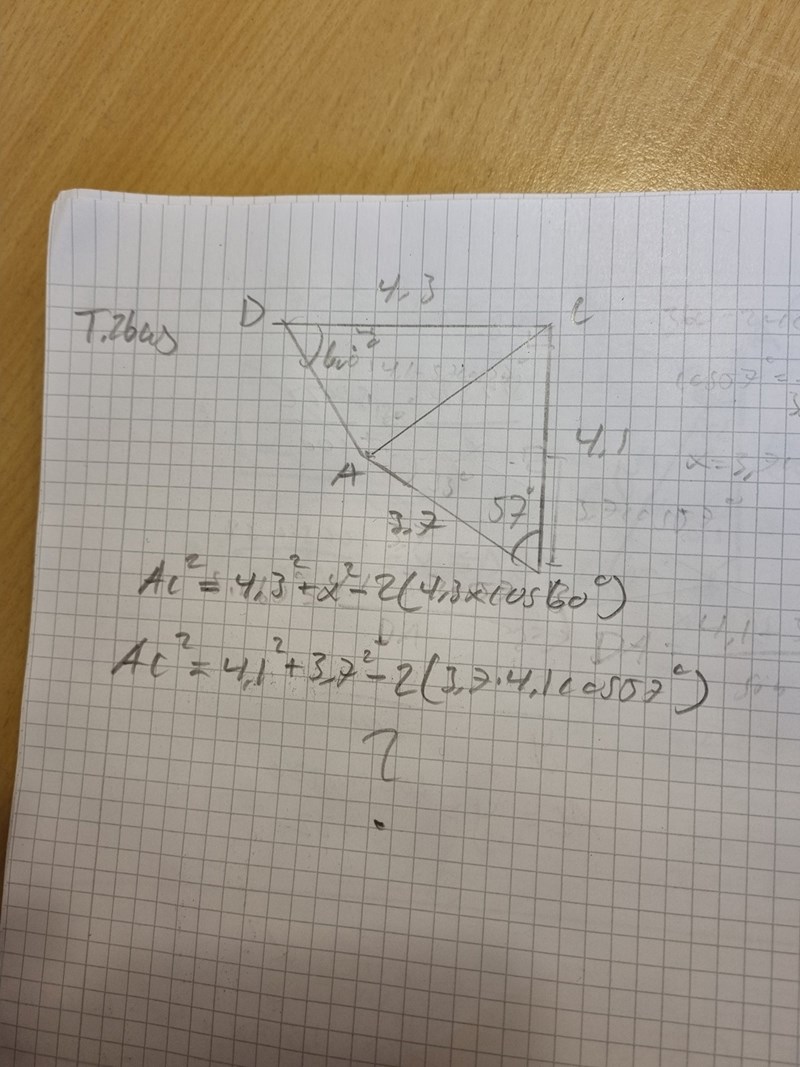 4,3
D
C
60°
A
4,1
3,7
57°
AC² = 4,3² + x² - 2(4,3x cos 60°)
AC² = 4,1² + 3,7² - 2(3,7·4,1 cos 57°)
?